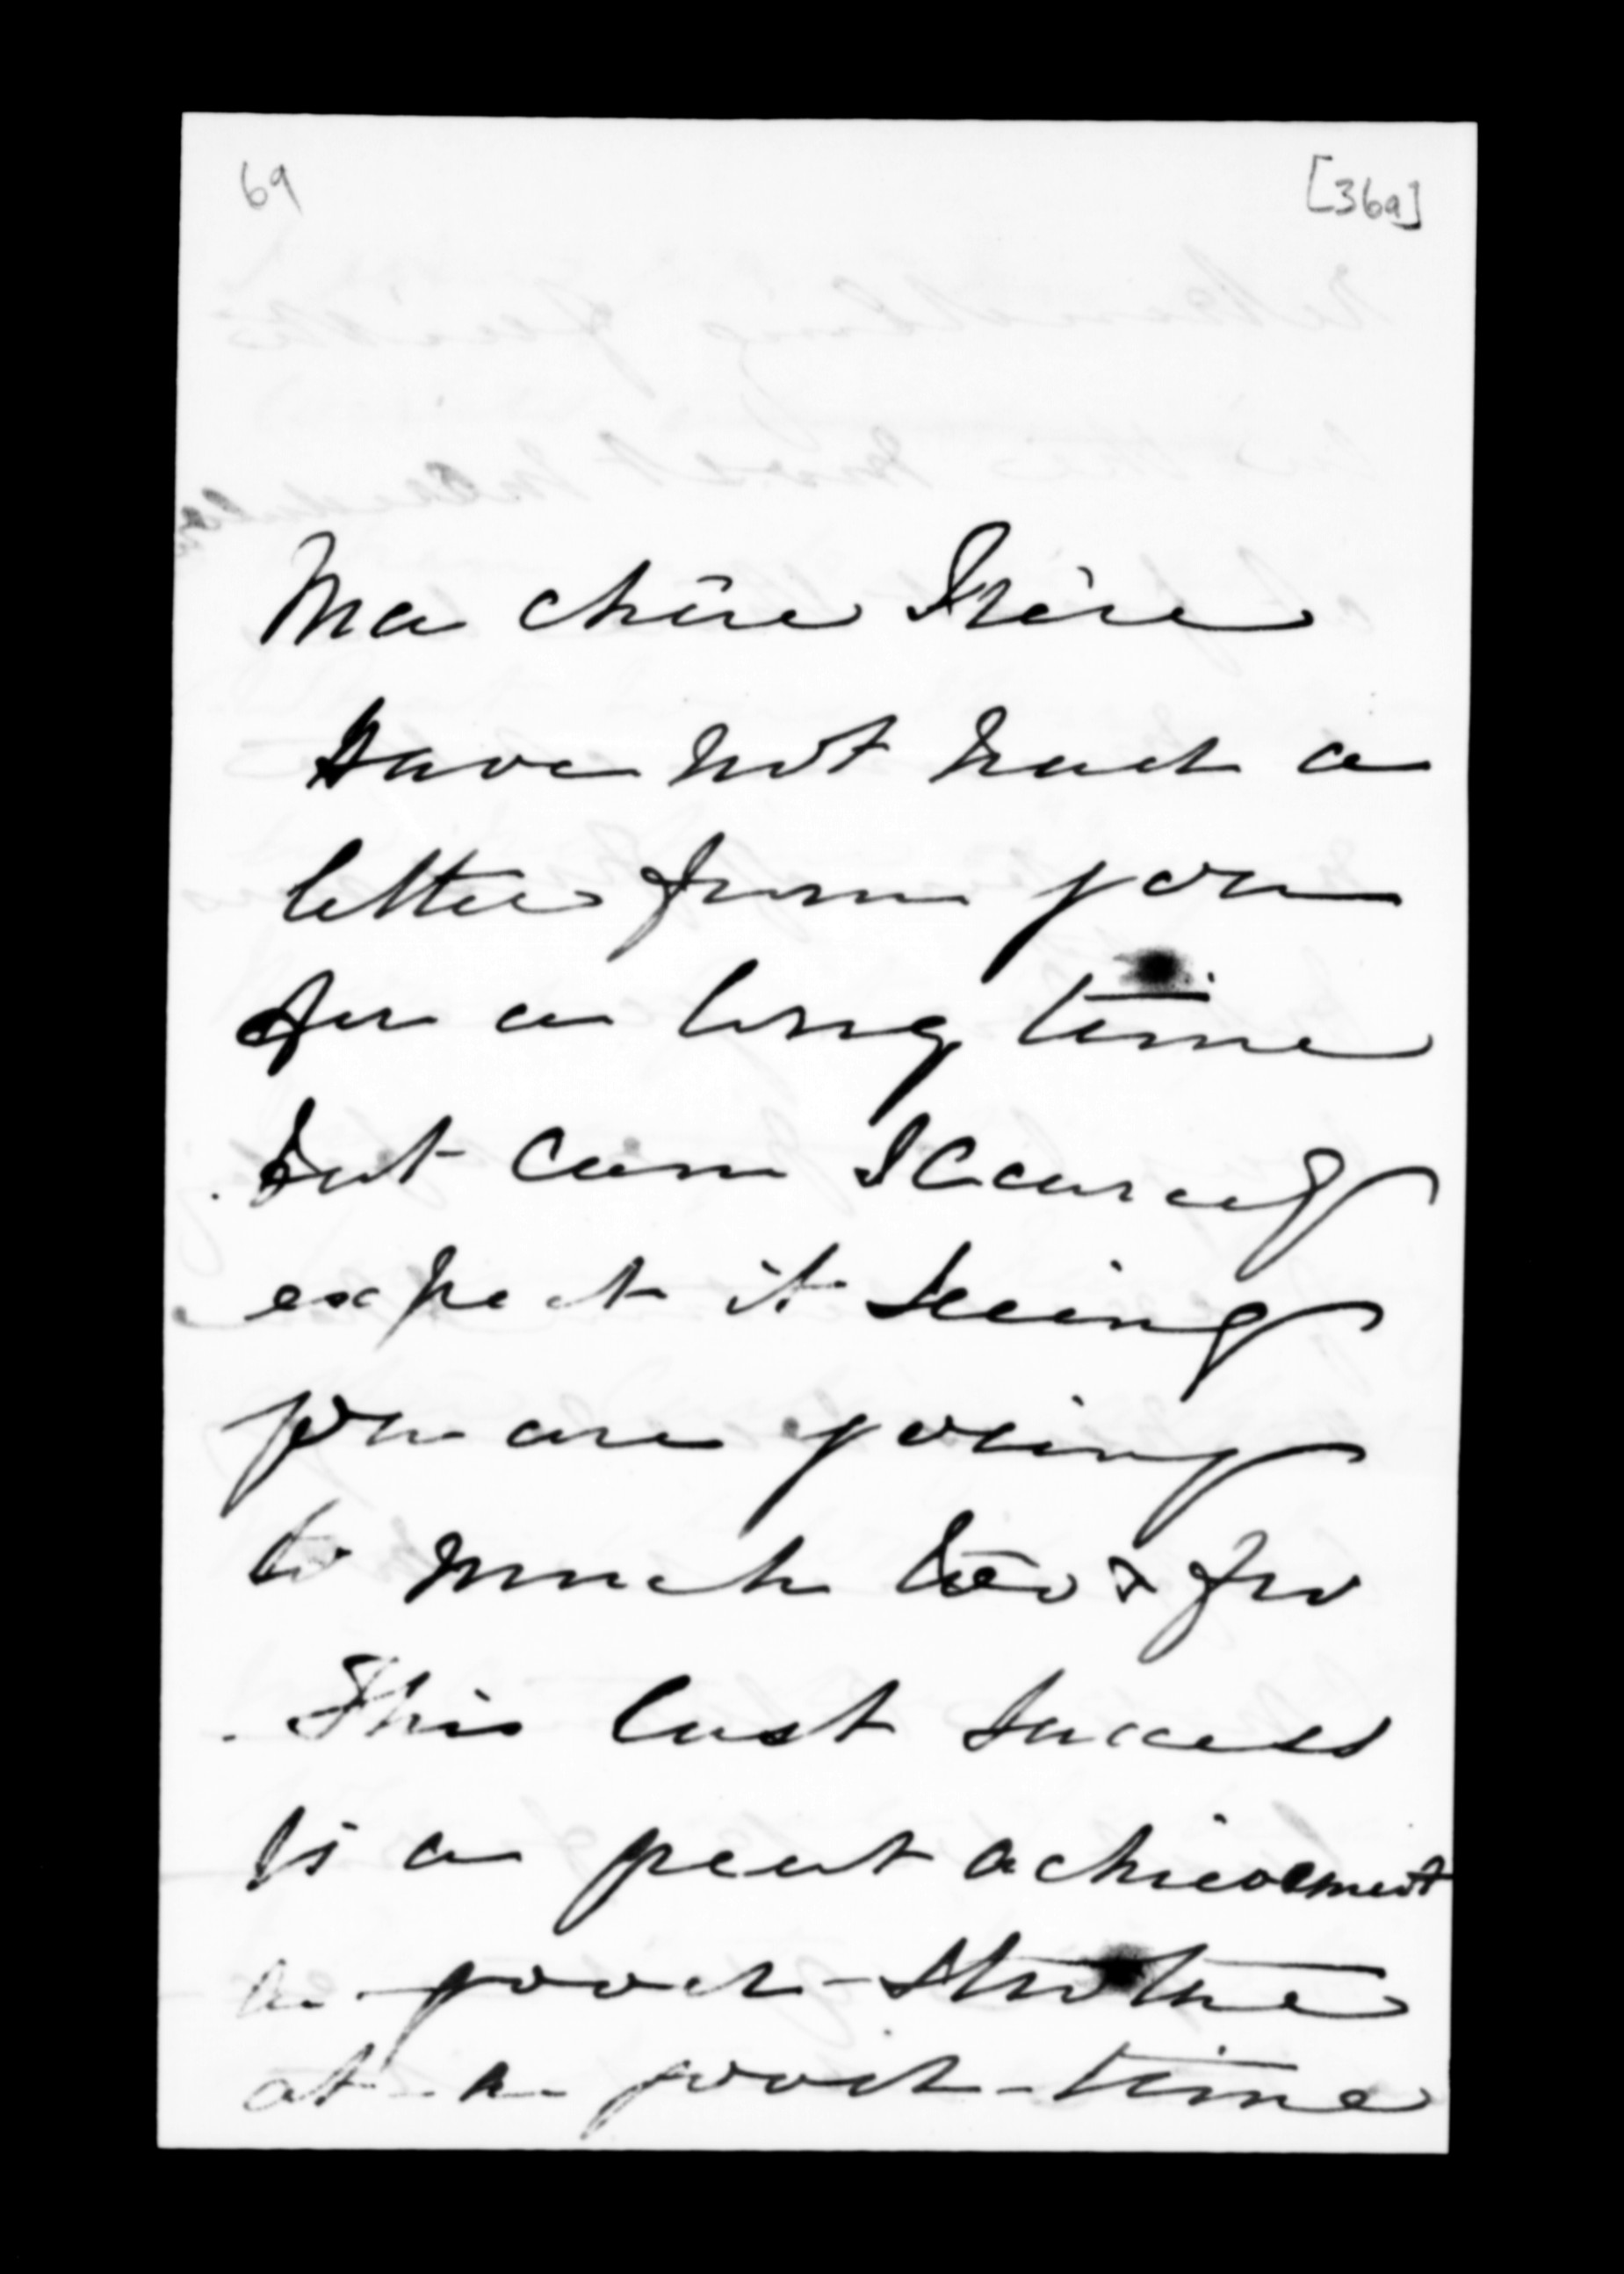 69
[369]
Ma chère Frère
Have not had a
letter from you
for a long time
but can scarcely
expect it seeing
you are going
to much too & fro
This last success
Is a great achievement
a good stroke
at a good time